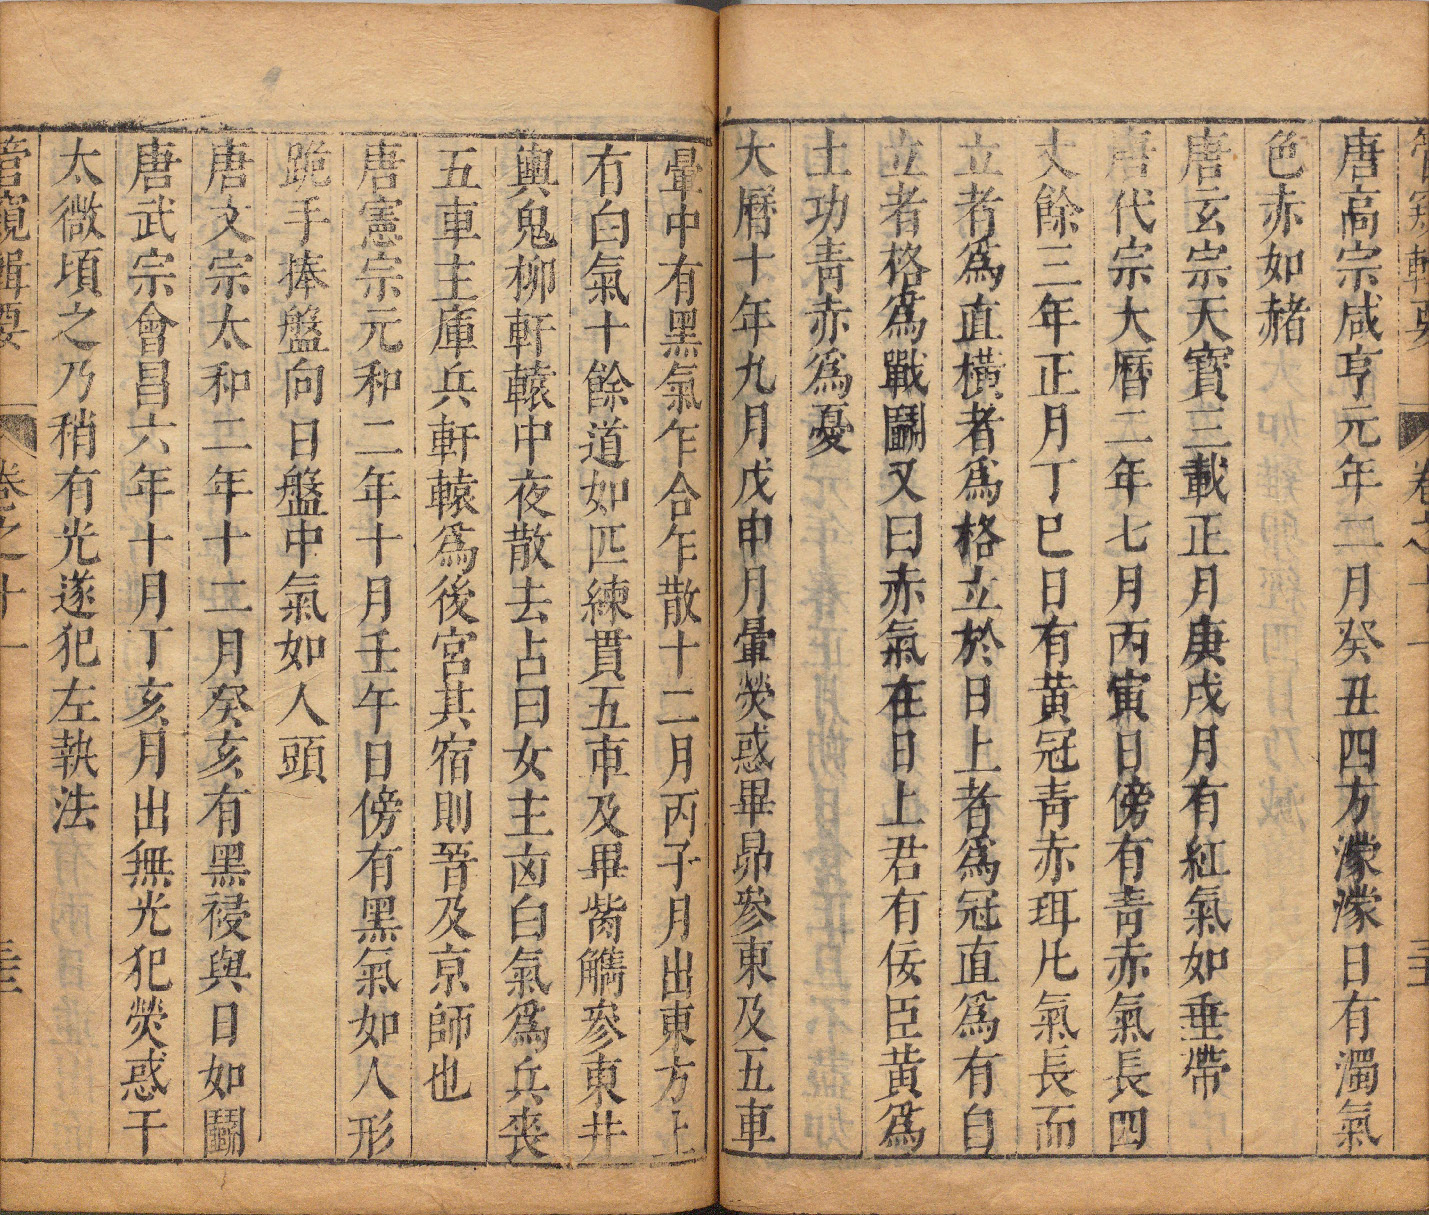 管窺輯要 卷之十一
唐高宗咸亨元年二月癸丑四方濛濛日有濁氣
色赤如赭
唐玄宗天寶三載正月庚戌月有紅氣如垂帶
唐代宗大曆二年七月丙寅日傍有青赤氣長四
丈餘三年正月丁巳日有黃冠青赤珥凡氣長而
立者為直橫者為格立於日上者為冠直為有自
立者格為戰鬭又曰赤氣在日上君有佞臣黃為
土功青赤為憂
大曆十年九月戊申月暈熒惑畢昴參東及五車
暈中有黑氣乍合乍散十二月丙子月出東方上
有白氣十餘道如匹練貫五車及畢觜觿參東井
輿鬼柳軒轅中夜散去占曰女主凶白氣為兵喪
五車主庫兵軒轅為後宮其宿則晉及京師也
唐憲宗元和二年十月壬午日傍有黑氣如人形
跪手捧盤向日盤中氣如人頭
唐文宗太和二年十二月癸亥有黑祲與日如鬭
唐武宗會昌六年十月丁亥月出無光犯熒惑于
太微頃之乃稍有光遂犯左執法
管窺輯要 卷之十一